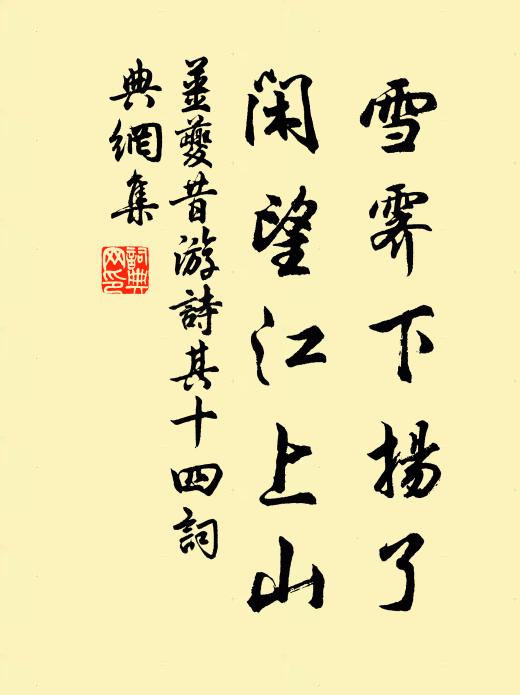 雪霽下揚了
閑望江上山
姜夔昔游詩其十四詞
典網集
詞典
网印